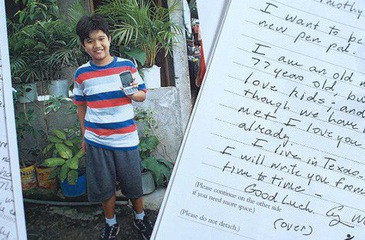 Timothy
I want to be
new pen pal.
I am an old m
77 years old, bu
love kids; and
though we have n
met I love you
already.
I live in Texas
I will write you from
time to time -
Good Luck.
(over)
(Please continue on the other side
if you need more space.)
(Please do not detach.)